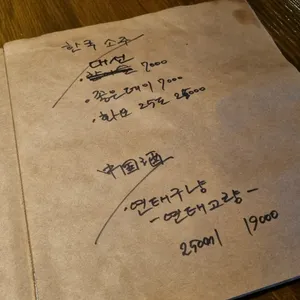 한국 소주
대선
· 7000
· 좋은데이 7000
· 화요 25도 25000
中国酒
· 연태구냥
- 연태고량 -
250ml 19000